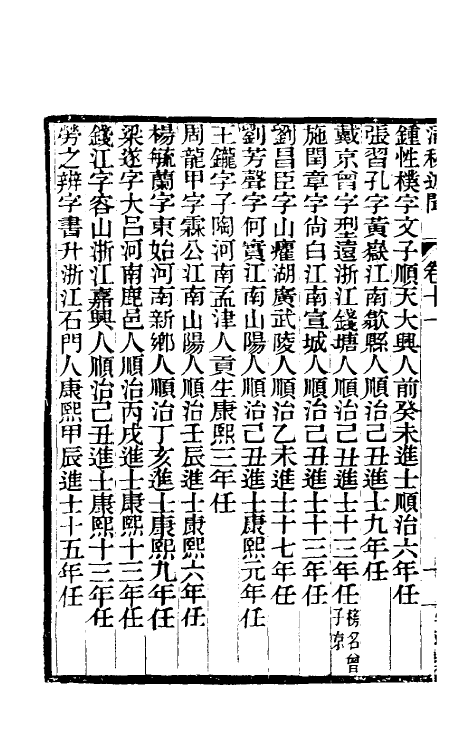 清秘述聞 卷十一
鍾性樸字文子順天大興人前癸未進士順治六年任
張習孔字黃嶽江南歙縣人順治己丑進士九年任
戴京曾字型遠浙江錢塘人順治己丑進士十三年任榜名曾子京
施閏章字尚白江南宣城人順治己丑進士十三年任
劉昌臣字山癯湖廣武陵人順治乙未進士十七年任
劉芳聲字何實江南山陽人順治己丑進士康熙元年任
王鑨字子陶河南孟津人貢生康熙三年任
周龍甲字霖公江南山陽人順治壬辰進士康熙六年任
楊毓蘭字東始河南新鄉人順治丁亥進士康熙九年任
梁遂字大呂河南鹿邑人順治丙戌進士康熙十三年任
錢江字容山浙江嘉興人順治己丑進士康熙十三年任
勞之辨字書升浙江石門人康熙甲辰進士十五年任